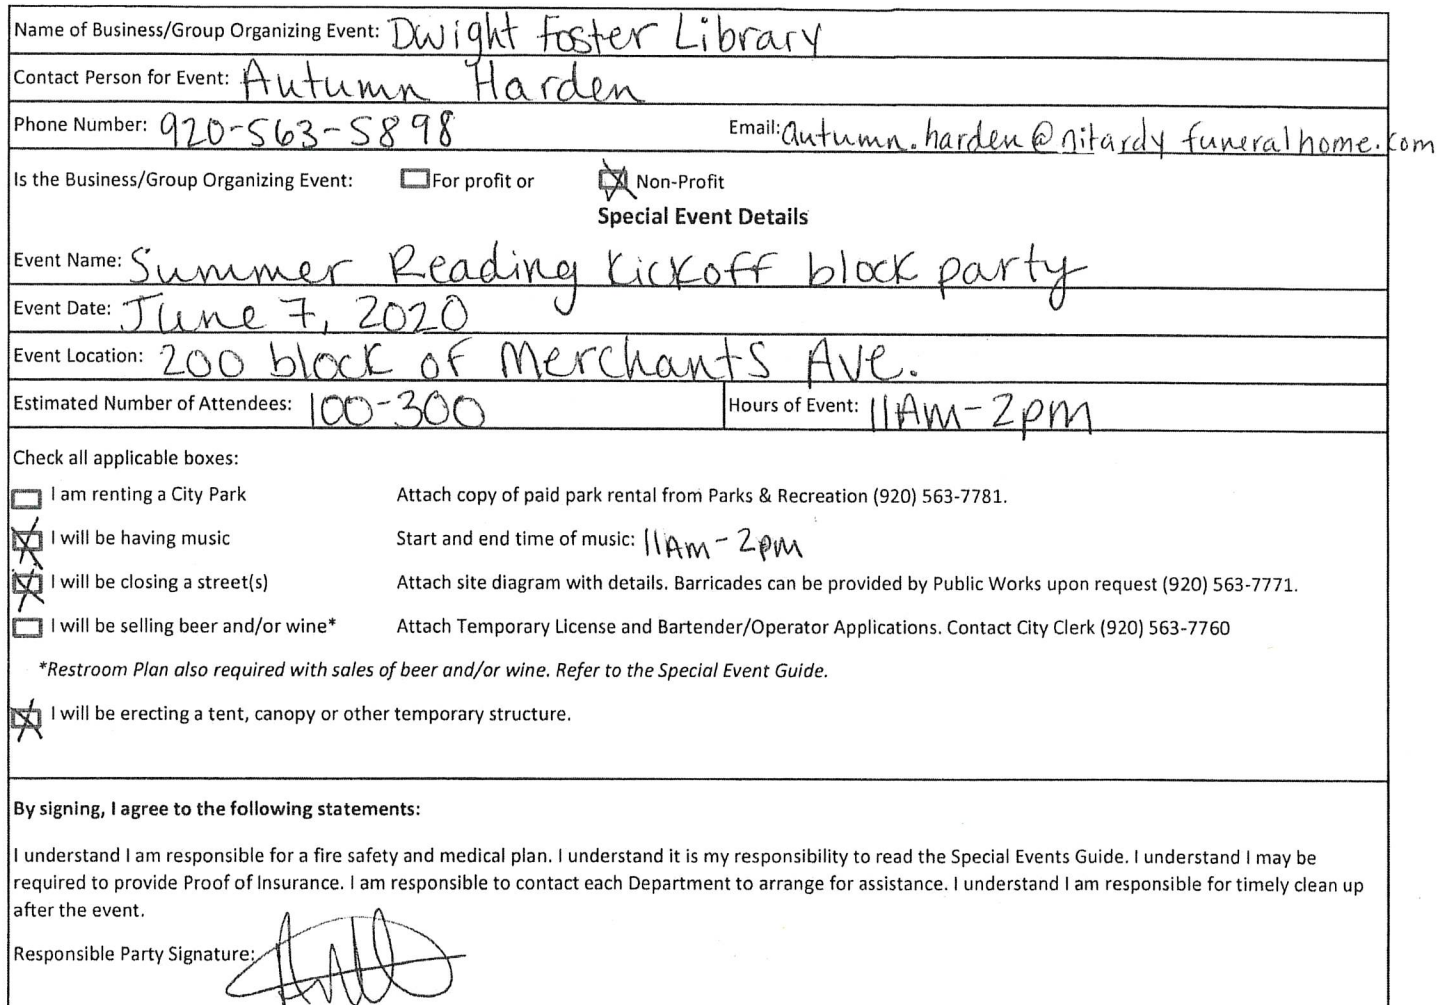 Name of Business/Group Organizing Event: Dwight Foster Library
Contact Person for Event: Autumn Harden
Phone Number: 920-563-5898 Email: autumn.harden@nitardyfuneralhome.com
Is the Business/Group Organizing Event: For profit or Non-Profit
Special Event Details
Event Name: Summer Reading Kickoff block party
Event Date: June 7, 2020
Event Location: 200 block of Merchants Ave.
Estimated Number of Attendees: 100-300 Hours of Event: 11Am-2pm
Check all applicable boxes:
I am renting a City Park Attach copy of paid park rental from Parks & Recreation (920) 563-7781.
I will be having music Start and end time of music: 11Am-2pm
I will be closing a street(s) Attach site diagram with details. Barricades can be provided by Public Works upon request (920) 563-7771.
I will be selling beer and/or wine* Attach Temporary License and Bartender/Operator Applications. Contact City Clerk (920) 563-7760
*Restroom Plan also required with sales of beer and/or wine. Refer to the Special Event Guide.
I will be erecting a tent, canopy or other temporary structure.
By signing, I agree to the following statements:
I understand I am responsible for a fire safety and medical plan. I understand it is my responsibility to read the Special Events Guide. I understand I may be
required to provide Proof of Insurance. I am responsible to contact each Department to arrange for assistance. I understand I am responsible for timely clean up
after the event.
Responsible Party Signature: